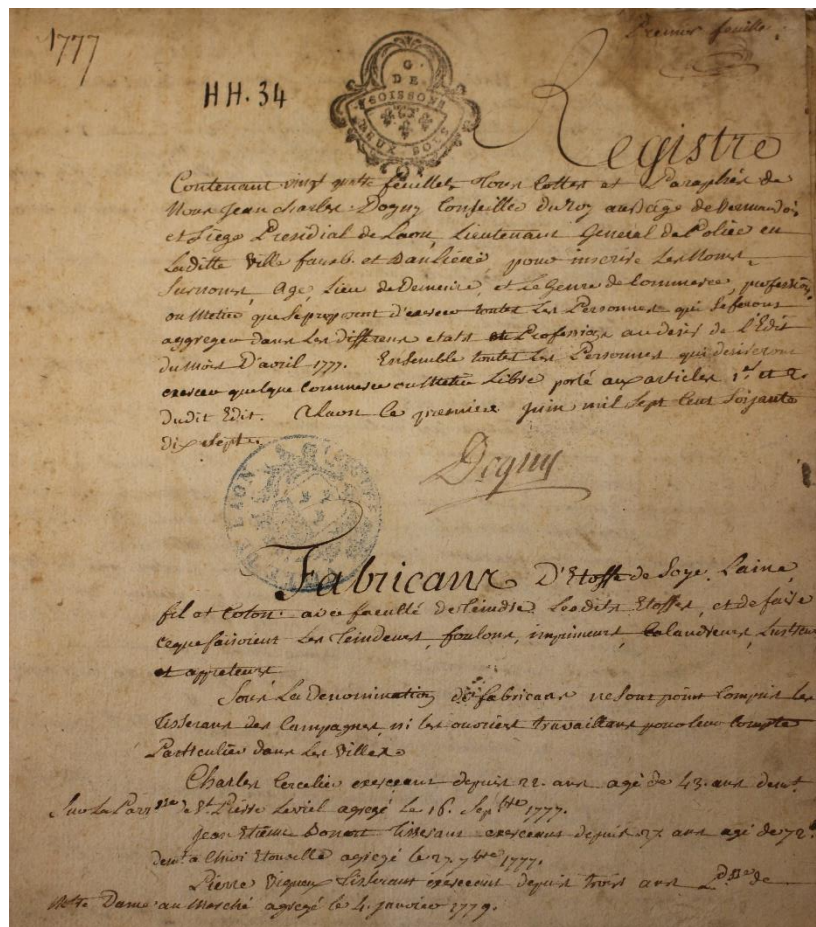 1777
Premier feuille
HH. 34
G.
DE
SOISSONS
DEUX SOLS
Registre
Contenant vingt quatre feuillets Tous Cottés et Paraphés de
Nous Jean Charles Dogny Conseiller du Roy au Bailliage de Vermandois
et Siege Presidial de Laon, Lieutenant General de Police en
Laditte Ville faux. et Banlieüe pour inscrire Les Noms,
Surnoms, Age, Lieu de Demeure, et Le Genre de Commerce, profession,
ou Metier que Se proposent d'exercer toutes Les Personnes qui Se feront
aggreger dans Les differens etats et Professions au desir de L'Edit
du mois D'avril 1777. Ensemble toutes Les Personnes qui desireront
exercer quelque Commerce ou Metier Libre porté aux articles 1er et 2.
dudit Edit. A Laon Le premiere Juin mil Sept Cent Soixante
dix Sept.
Dogny
VILLE DE LAON
Fabricans D'Etoffe de Soye, Laine,
fil et Coton avec faculté de Teindre Lesdits Etoffes, et de faire
ce que faisoient Les Teinturiers, foulons, imprimeurs, Calandreurs, Lustreurs
et appreteurs
Sous La Denomination de fabricans ne Sont point Compris les
Tisserans des Campagnes, ni les ouvriers travaillans pour leur Compte
Particulier dans Les Villes
Charles Cercelier exerceant depuis 22. ans agé de 43. ans demt.
Sur La Parsse de St. Pierre Leviel agregé le 16. Sepbre 1777.
Jean Etienne Donart Tisserant exerceant depuis 37 ans agé de 72.
demt. a Chivi Etouvelle agregé le 27. 7bre 1777.
Pierre Vigneux Tisserant exercant depuis trois ans Psse de
Notre Dame au Marché agregé le 4. janvier 1779.